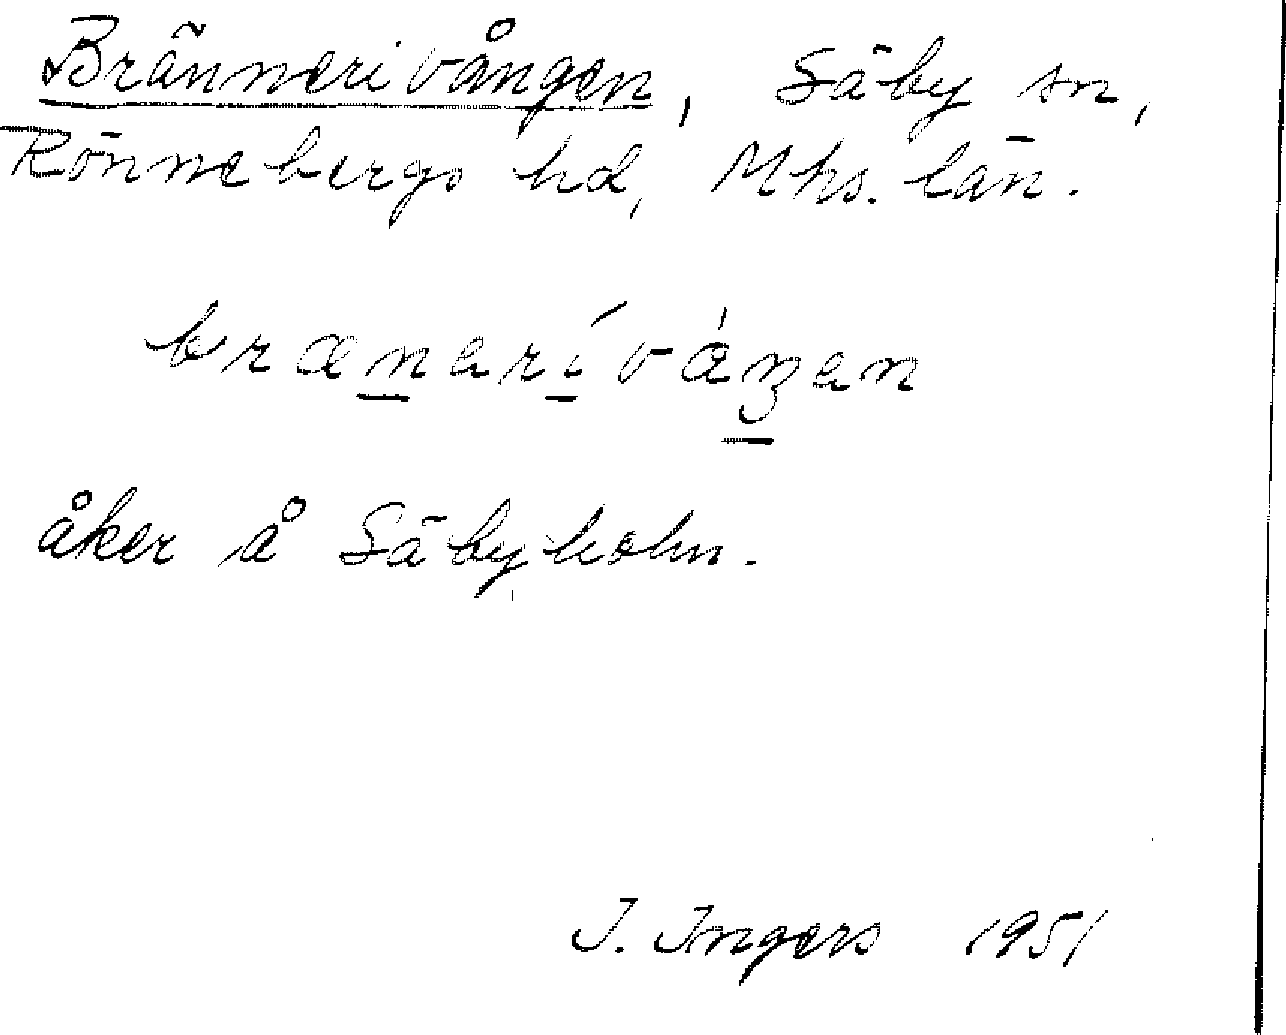 Brännerivången, Säby sn,
Rönnebergs hd, Mhs. län.
brænerívåŋen
åker å Säbyholm.
I. Ingers 1951